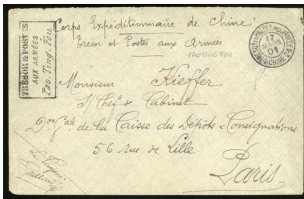 Corps Expéditionnaire de Chine
Trésor et Postes aux Armées
TRÉSOR & POSTES
AUX ARMÉES
Pao Ting Fou
17
MARS
01
Monsieur Kieffer
S/Chef de Cabinet
Don Gale de la Caisse des Dépôts Consignations
56 rue de Lille
Paris
Le Payeur